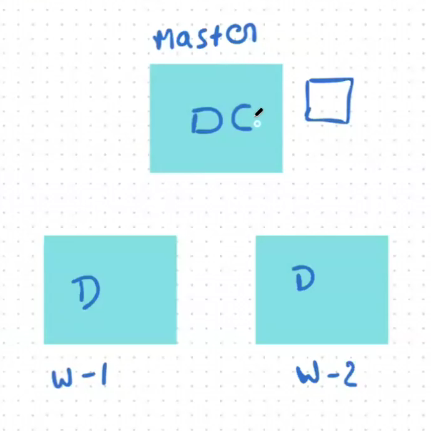 Master
DC
D
D
W-1
W-2